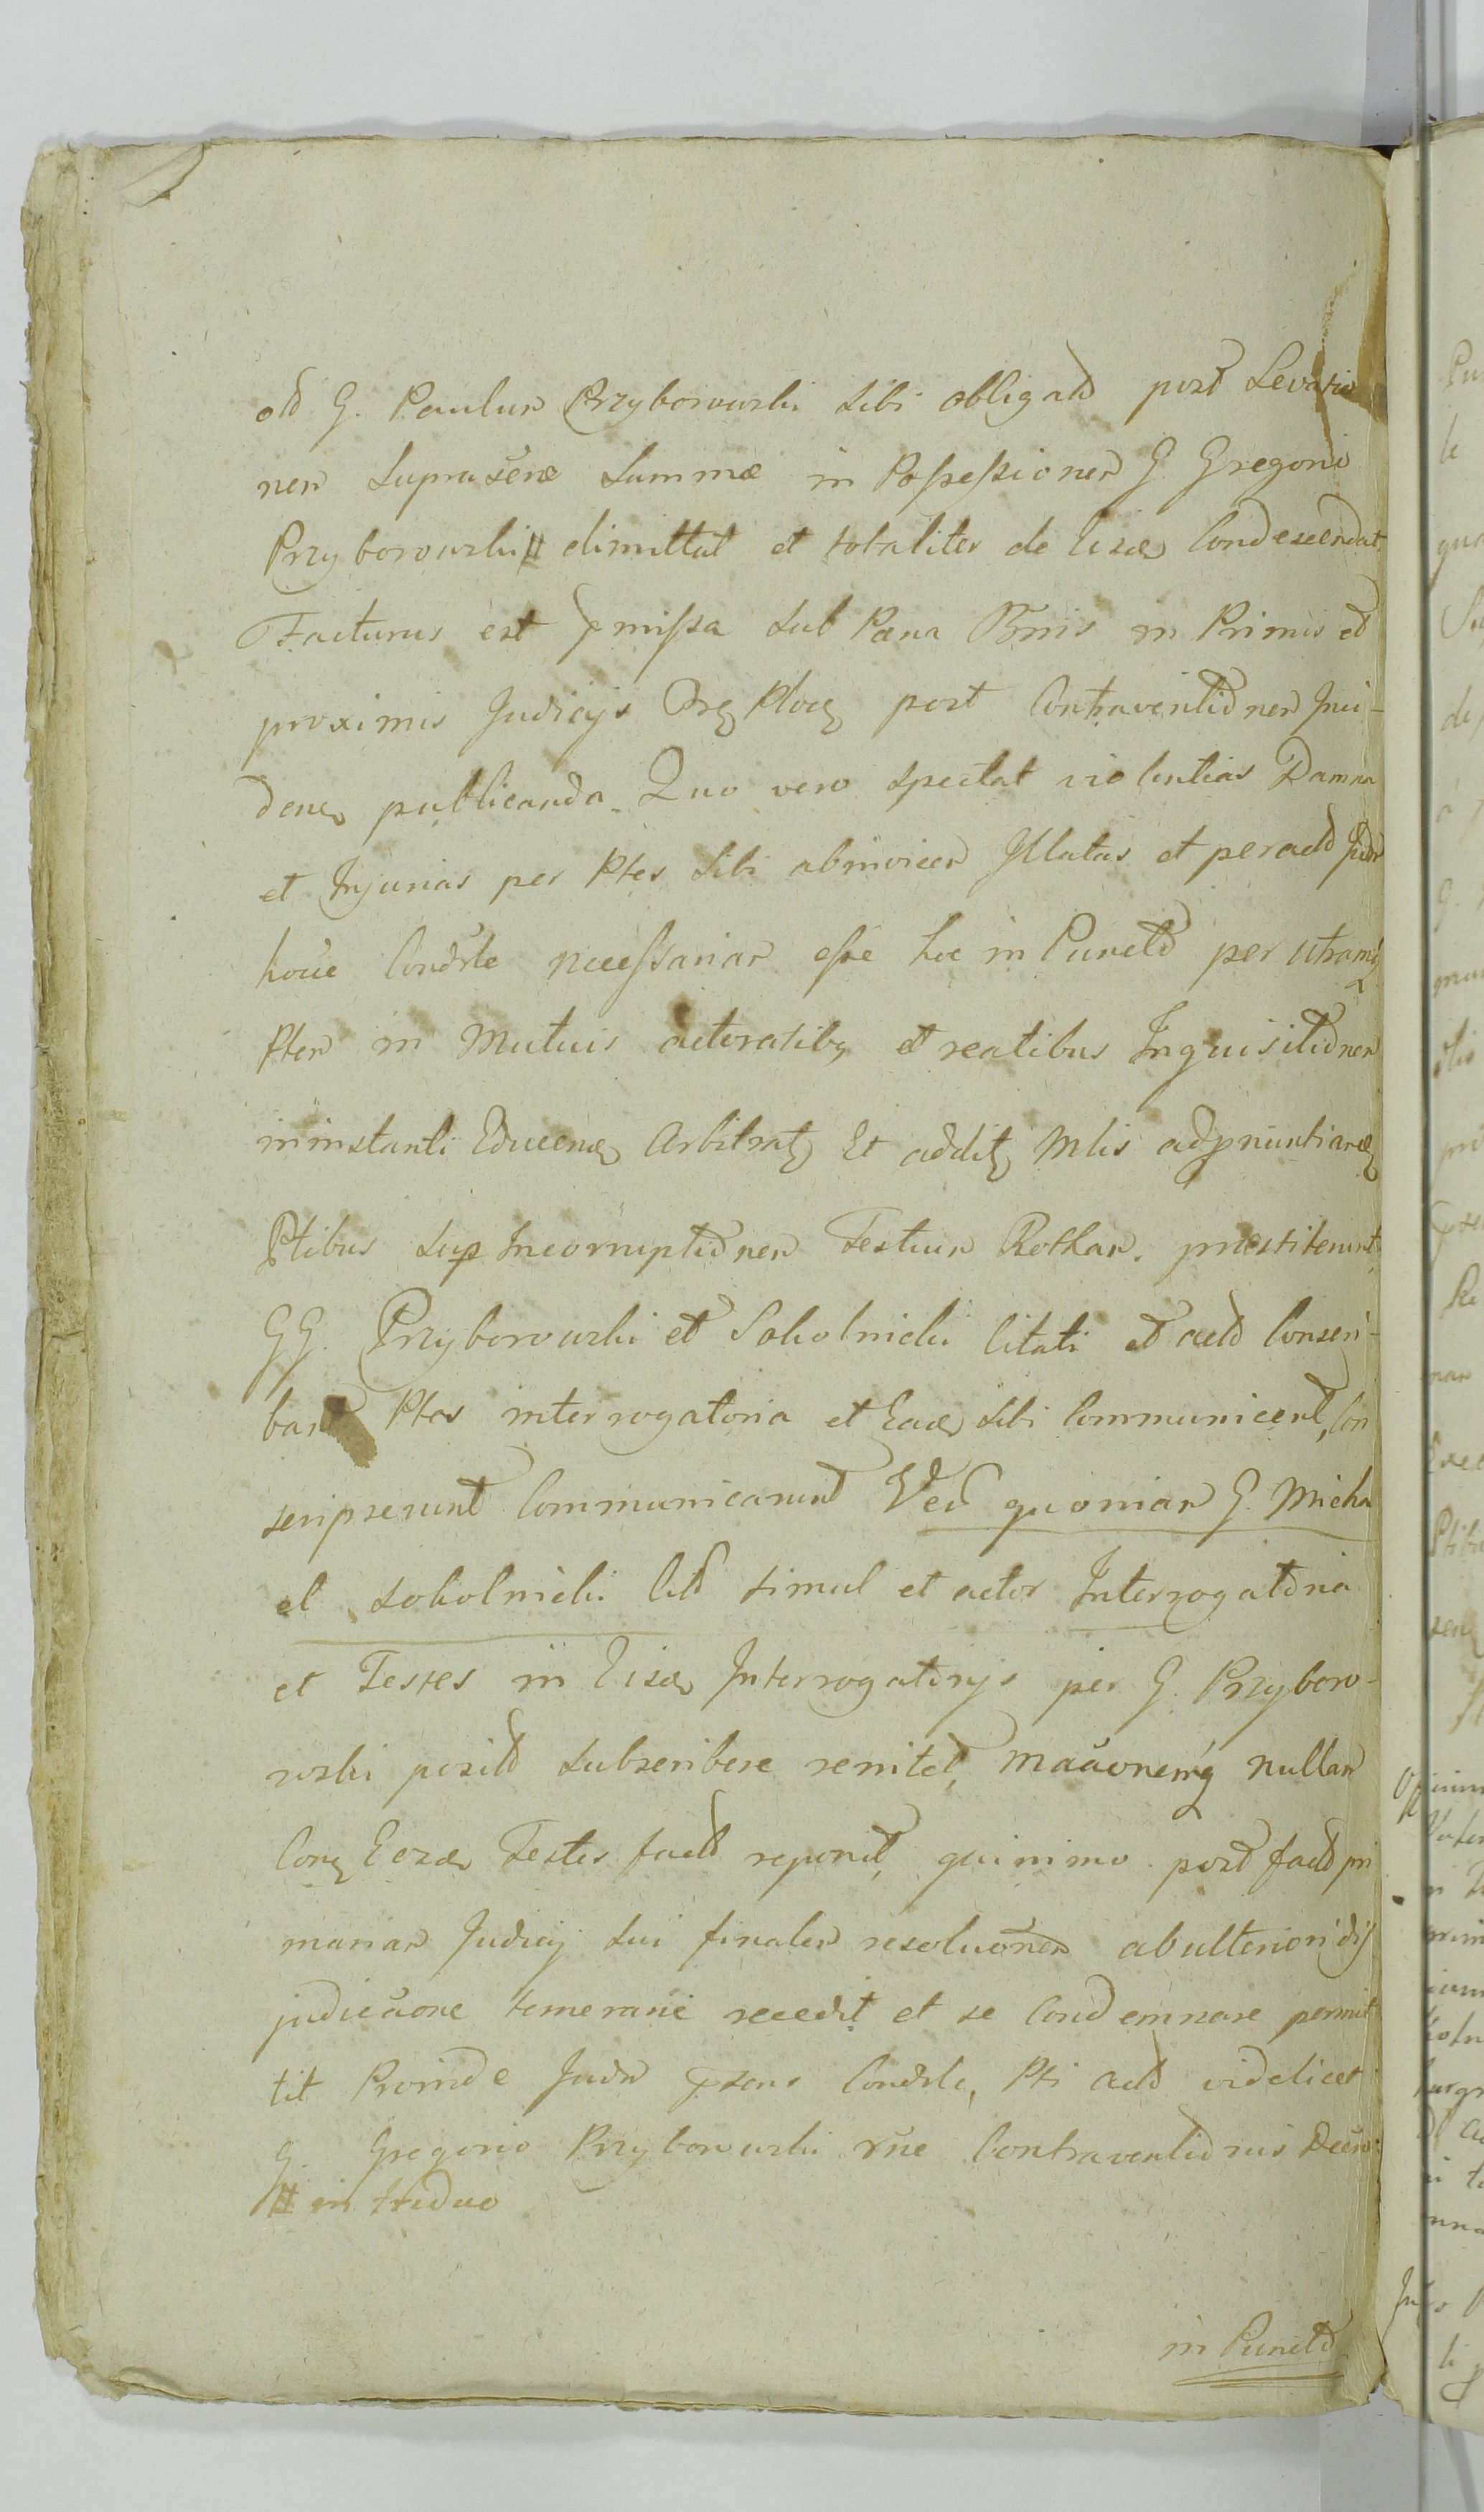 G. Paulum Przyborowski sibi obligat post Levatio
nem suprascrae summae in Possessionem G. Gregorio
Przyborowski # dimittat et totaliter de Eisdem Condescendat
Facturus est pmissa sub Paena Bnnis in Primis et
proximis Judicijs Org Ploc post Contraventionem Inci-
dene publicanda. Quo vero spectat violentias Damna
et Injurias per Ptes sibi abinvicem Illatas et
necessariam esse hoc in Puncto per utramq
Ptem in Mutuis actoratibq et reatibus Inquisitionem
ininstanti Educend Arbitrat Et addit Mlis
Ptibus sup Incorruptionem Testium Rotham. praestiterunt
GG. Przyborowski et Sokolnicki Citati et act Conscri-
bant Ptes interrogatoria et Eadem sibi Communicent, Con
scripserunt Communicarunt Ved quoniam G. Micha
el Sokolnicki Cit simul et actor Interrogatoria
et Testes in Eisdem Interrogatorijs per G. Przyboro-
wski posit subscribere renitet, nullam
Testes fact reponit, quinimo post fact pri
mariam Judicij sui finalem resoluonem abulteriori dij
judicaone temerarie recedit et se Condemnare permit
tit Proinde Judm psens Pti act videlicet
G. Gregorio Przyborowski rne Contraventionis
# in triduo
in Puncto